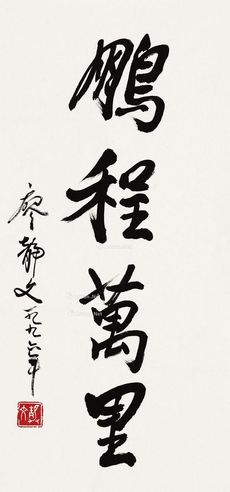 鵬程萬里
廖靜文一九九六年